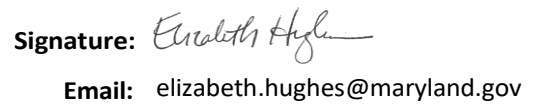 Signature: Elizabeth Hughes
Email: elizabeth.hughes@maryland.gov